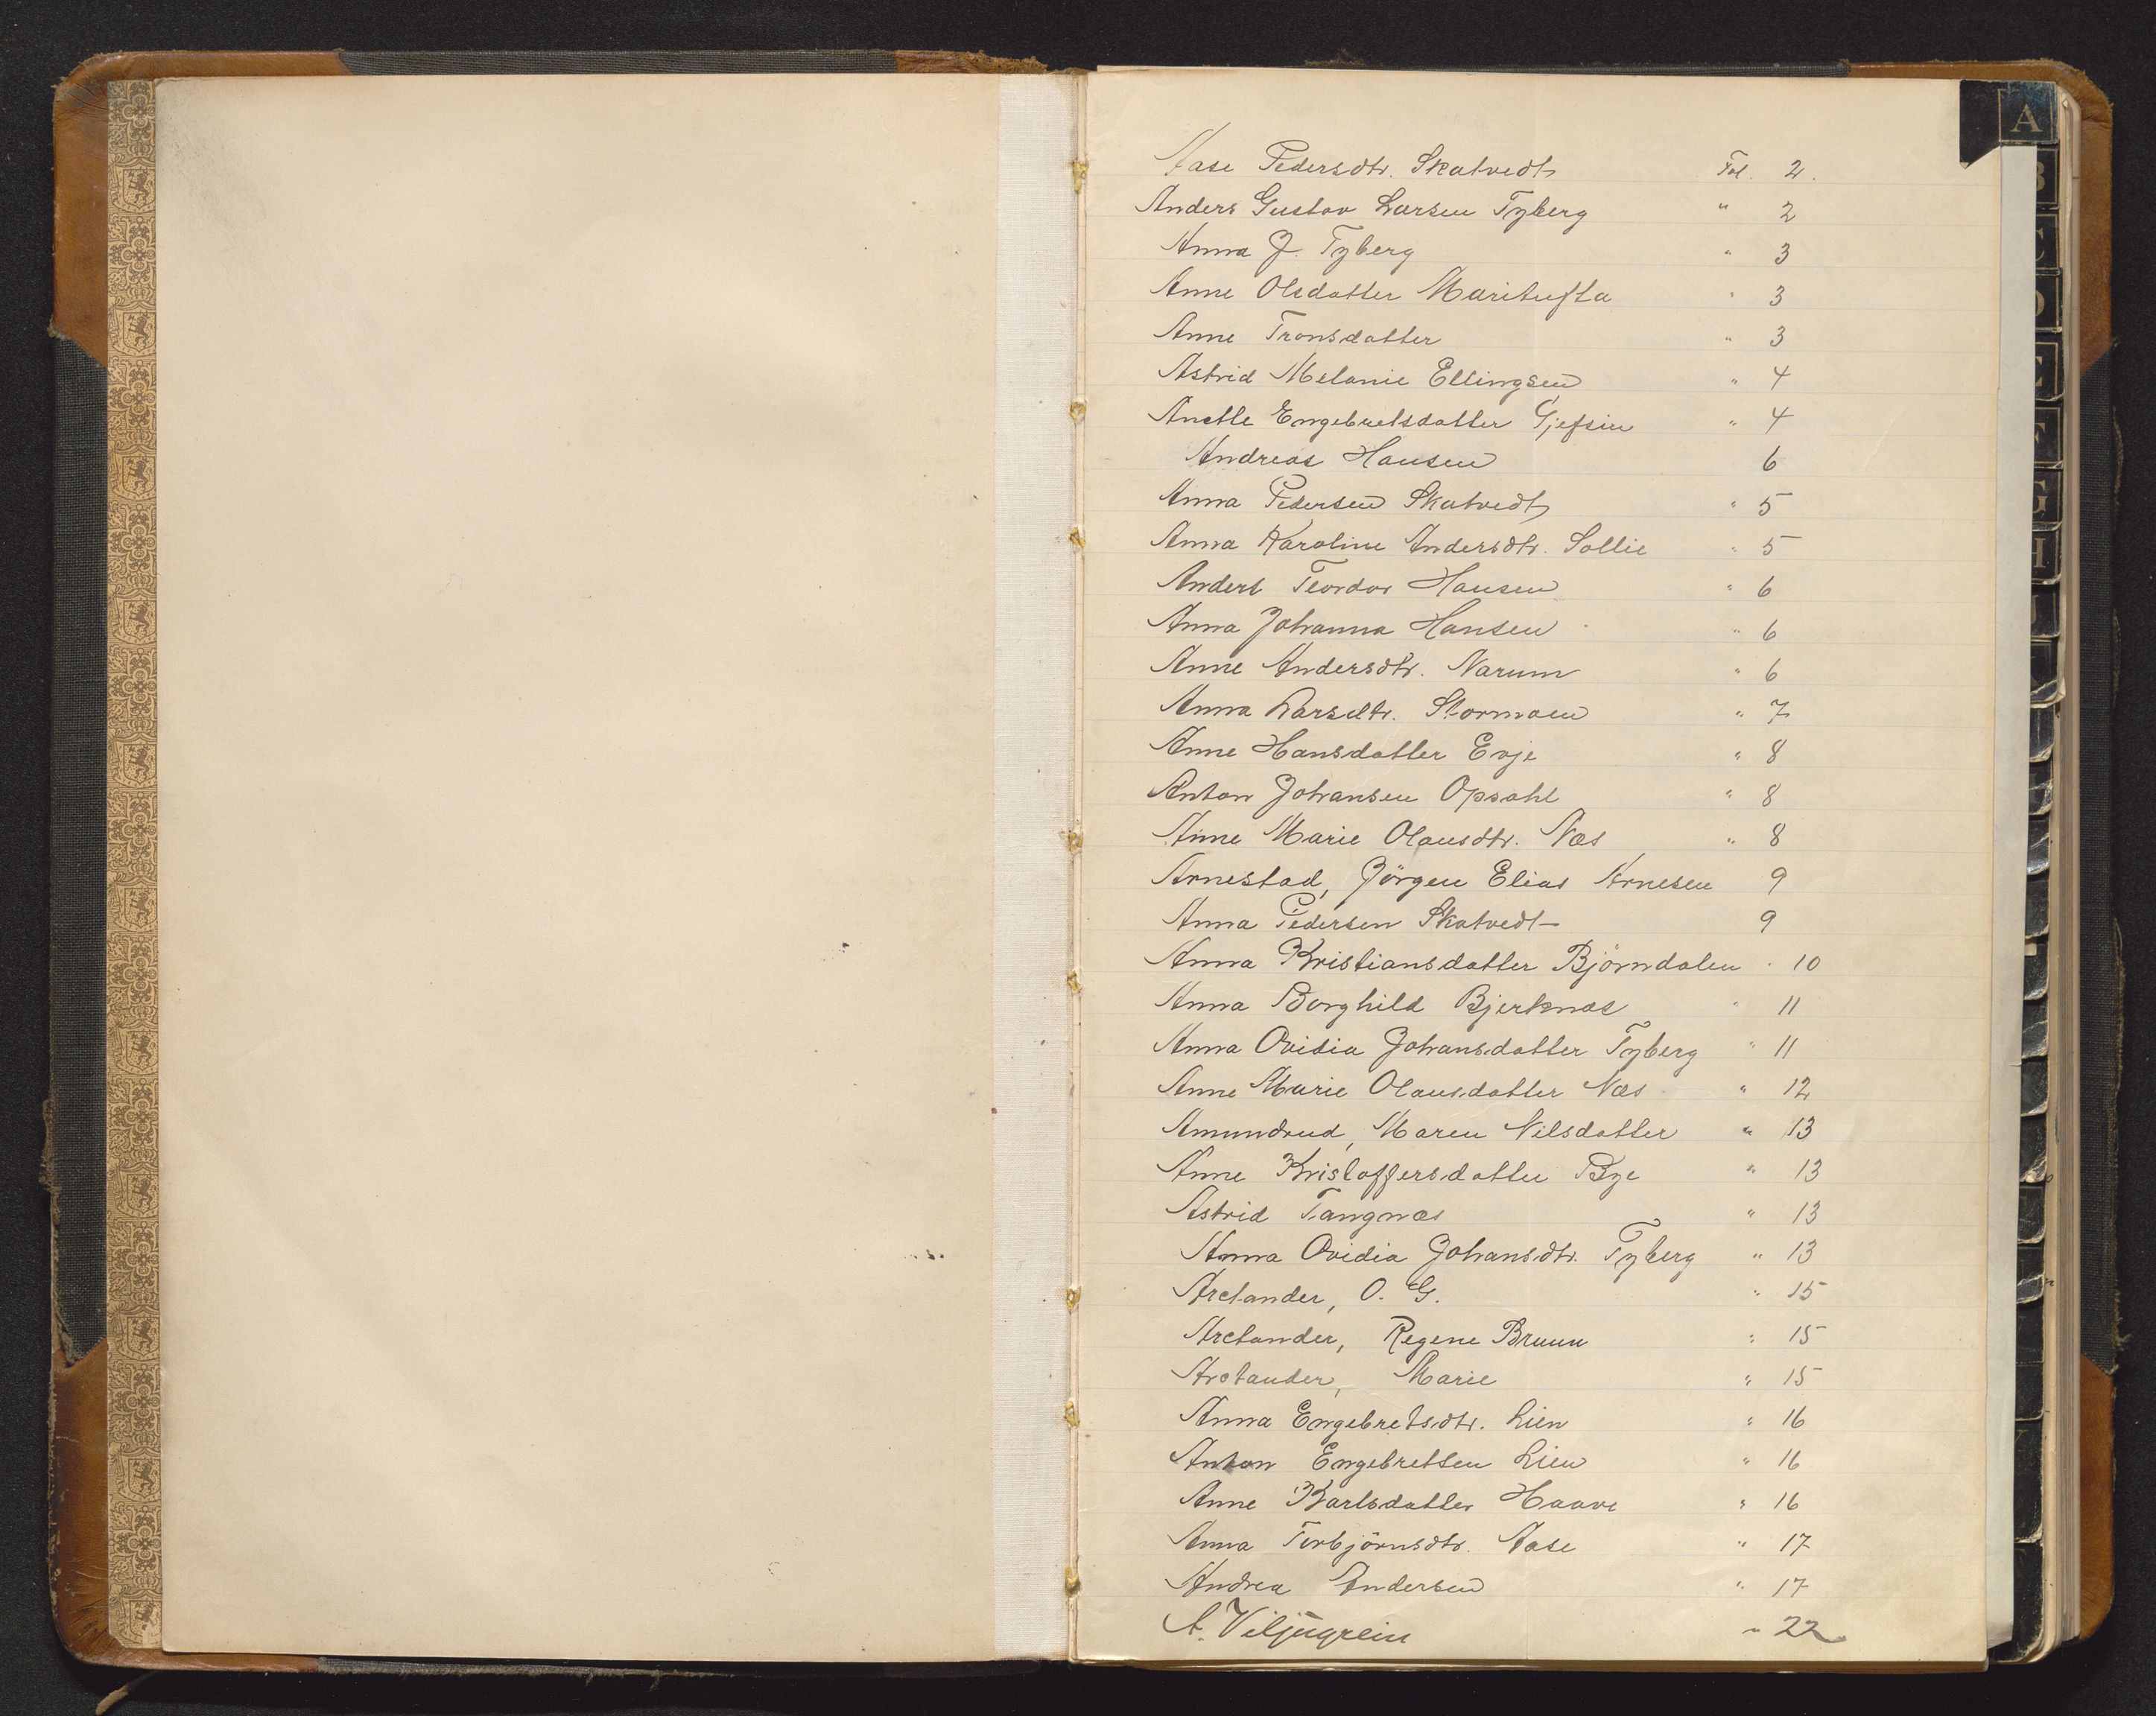 A
Aase Pedersdtr. Skatvedt Fol. 2.
Anders Gustav Larsen Tyberg " 2
Anna J. Tyberg " 3
Anne Olsdatter Maritufta " 3
Anne Tronsdatter " 3
Astrid Melanie Ellingsen " 4
Anette Engebretsdatter Gjefsen " 4
Andreas Hansen 6
Anna Pedersen Skatvedt " 5
Anna Karoline Andersdtr. Sollie " 5
Anders Teordor Hansen " 6
Anna Johanna Hansen " 6
Anne Andersdtr. Narum " 6
Anna Larsdtr. Stormoen " 7
Anne Hansdatter Evje " 8
Anton Johansen Opsahl " 8
Anne Marie Olausdtr. Næs " 8
Arnestad, Jörgen Elias Arnesen 9
Anna Pedersen Skatvedt 9
Anna Kristiansdatter Björndalen " 10
Anna Borghild Bjerknæs " 11
Anna Ovidia Johansdatter Tyberg " 11
Anne Marie Olausdatter Næs " 12
Amundrud, Maren Nilsdatter " 13
Anne Kristoffersdatter Bye " 13
Astrid Tangnæs " 13
Anna Ovidia Johansdtr. Tyberg " 13
Arctander, O. G. " 15
Arctander, Regene Bruun " 15
Arctander, Marie " 15
Anna Engebretsdtr. Lien " 16
Anton Engebretsen Lien " 16
Anne Karlsdatter Haave " 16
Anna Torbjörnsdtr. Aase " 17
Andrea Andersen " 17
A. Viljugrein " 22